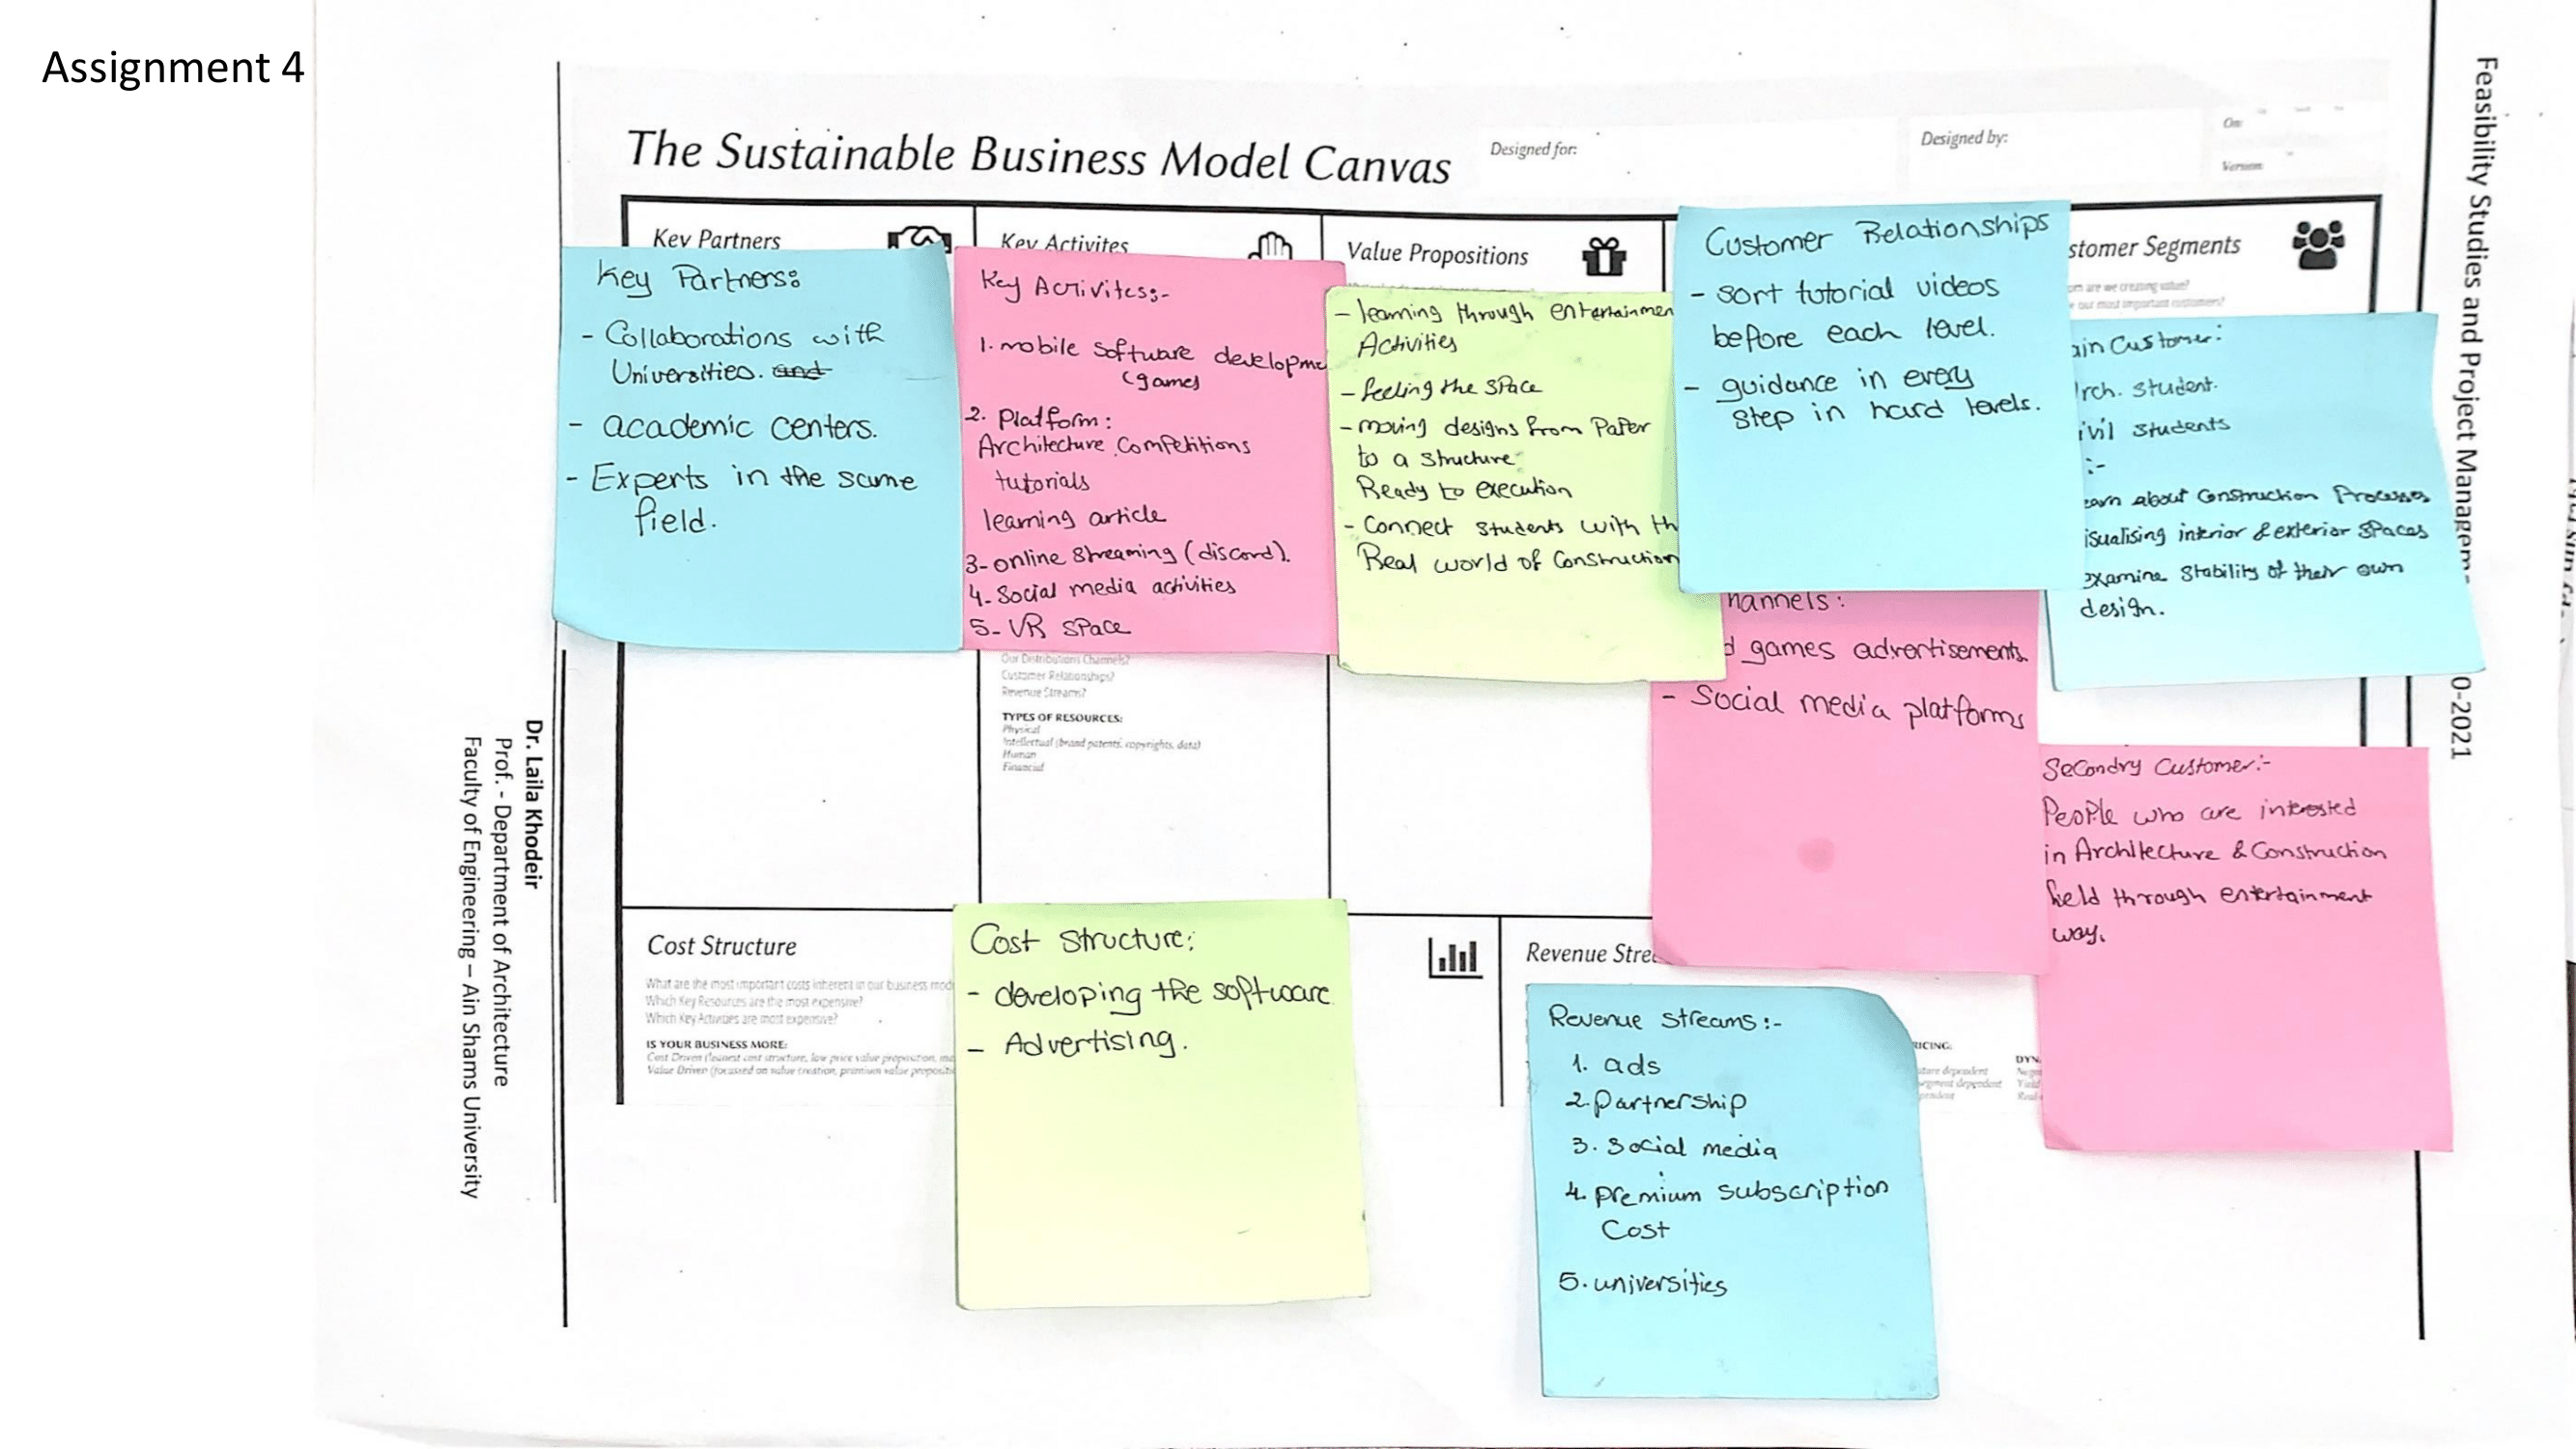 Assignment 4
The Sustainable Business Model Canvas
Designed for:
Designed by:
On:
Version:
Key Partners
Key Partners:
- Collaborations with
Universities. and
- academic centers.
- Experts in the same
field.
Key Activites
Key Activites:-
1. mobile software developme
(games
2. Platform:
Architecture Competitions
tutorials
learning article
3- online streaming (discord).
4- Social media activities
5- VR space
Our Distributions Channels?
Customer Relationships?
Revenue Streams?
TYPES OF RESOURCES:
Physical
Intellectual (brand patents, copyrights, data)
Human
Financial
Value Propositions
- learning through entertainmen
Activities
- feeling the space
- moving designs from Paper
to a structure
Ready to execution
- Connect students with th
Real world of Construction
Customer Relationships
- sort tutorial videos
before each level.
- guidance in every
step in hard levels.
hannels:
d games advertisements.
- Social media platforms
stomer Segments
om are we creating value?
our most important customers?
ain Customer:
rch. student.
ivil students
:-
earn about Construction Processes
isualising interior & exterior spaces
examine stability of their own
design.
Secondry Customer:-
People who are interested
in Architecture & Construction
field through entertainment
way.
Cost Structure
What are the most important costs inherent in our business mod
Which Key Resources are the most expensive?
Which Key Activities are most expensive?
IS YOUR BUSINESS MORE:
Cost Driven (leanest cost structure, low price value proposition,
Value Driven (focussed on value creation, premium value propositi
Cost structure:
- developing the software
- Advertising.
Revenue Stre
Revenue streams:-
1. ads
2. partnership
3. social media
4. premium subscription
Cost
5. universities
RICING:
ture dependent
egment dependent
pendent
DYN
Nego
Yield
Real-
Feasibility Studies and Project Managem
0-2021
Dr. Laila Khodeir
Prof. - Department of Architecture
Faculty of Engineering – Ain Shams University